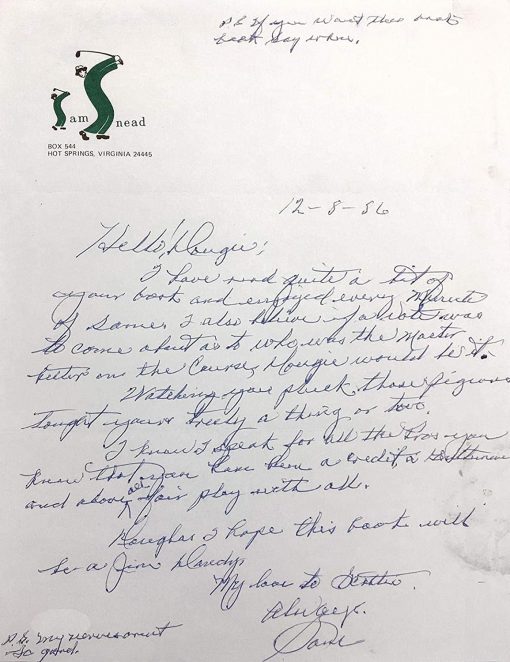 P.S. If you want this book
back say when.
Sam Snead
BOX 544
HOT SPRINGS, VIRGINIA 24445
12-8-86
Hello! Dougie;
I have read quite a bit of
your book and enjoyed every minute
of same. I also believe if a vote was
to come about as to who was the Master
on the Course, Dougie would be it.
Watching you pluck those pigeons
taught yours truly a thing or two.
I know I speak for all the Pros you
know that you have been a credit a
and above all fair play with all.
Douglas I hope this book will
be a Jim Dandy.
My love to
Always.
Sam
P.S. My nerves arnt
so good.